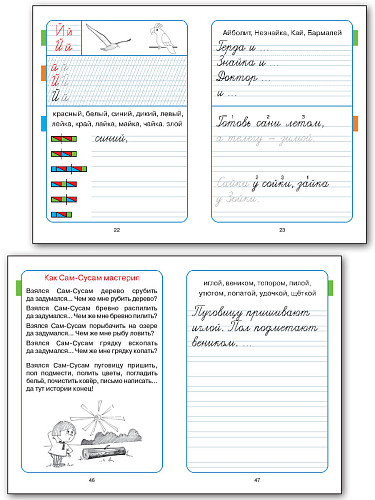 Й й
Й й
й
Й й
Й й
красный, белый, синий, дикий, левый,
лейка, край, лайка, майка, чайка, злой
синий,
22
Айболит, Незнайка, Кай, Бармалей
Герда и ...
Знайка и ...
Доктор ...
и ...
1 2 3
Готовь сани летом,
а телегу – зимой.
Сайка у сойки, зайка
у Зойки.
23
Как Сам-Сусам мастерил
Взялся Сам-Сусам дерево срубить
да задумался... Чем же мне рубить дерево?
Взялся Сам-Сусам бревно распилить
да задумался... Чем же мне бревно пилить?
Взялся Сам-Сусам порыбачить на озере
да задумался... Чем же мне рыбу ловить?
Взялся Сам-Сусам грядку вскопать
да задумался... Чем же мне грядку копать?
Взялся Сам-Сусам пуговицу пришить,
пол подмести, полить цветы, погладить
бельё, почистить ковёр, письмо написать...
да тут истории конец!
46
иглой, веником, топором, пилой,
утюгом, лопатой, удочкой, щёткой
Пуговицу пришивают
иглой. Пол подметают
веником. ...
47